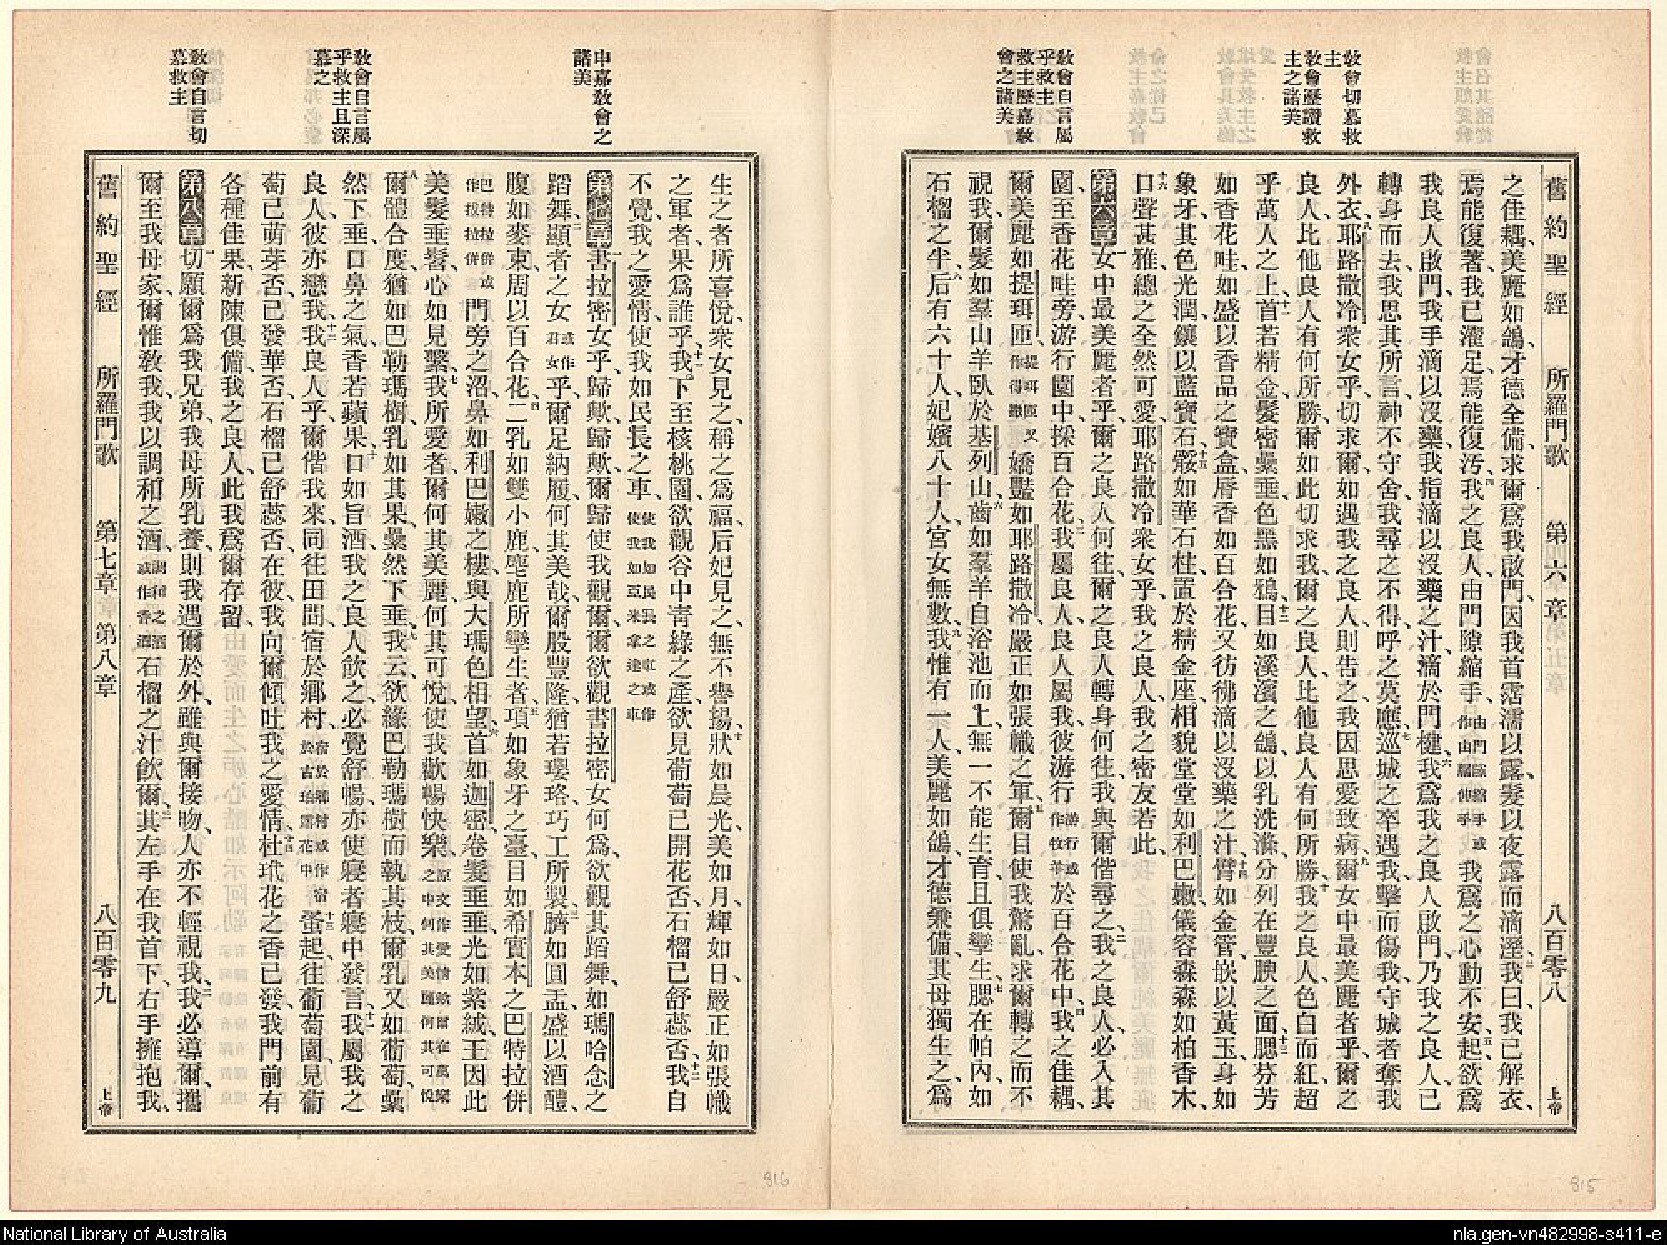 教會切慕救主
教會歷讚救主之諸美
教會自言屬乎救主
救主歷嘉教會之諸美
舊約聖經 所羅門歌 章 八百零八 上帝
之佳耦、美麗如鴿、才德全備、求爾爲我啟門、因我首霑濡以露、髮以夜露而滴溼、三我曰、我已解衣、
焉能復著、我已濯足、焉能復汚、四我之良人、由門隙縮手、由門隙縮手或作由隙伸手我爲之心動不安、五起欲爲
我良人啟門、我手滴以沒藥、我指滴以沒藥之汁、滴於門楗、六我爲我之良人啟門、乃我之良人已
轉身而去、我思其所言、神不守舍、我尋之不得、呼之莫應、七巡城之卒遇我、擊而傷我、守城者奪我
外衣、八耶路撒冷衆女乎、切求爾、如遇我之良人、則告之、我因思愛致病、九爾女中最美麗者乎、爾之
良人、比他良人有何所勝、爾如此切求我、爾之良人比他良人有何所勝、十我之良人色白而紅、超
乎萬人之上、十一首若精金、髮密纍垂、色黑如鴉、十二目如溪濱之鴿、以乳洗滌、分列在豐腴之面、十三腮芬芳
如香花畦、如盛以香品之寶盒、脣香如百合花、又彷彿滴以沒藥之汁、十四臂如金管、嵌以黃玉、身如
象牙、其色光潤、鑲以藍寶石、十五骽如華石柱、置於精金座、相貌堂堂如利巴嫩、儀容森森如柏香木、
十六口聲甚雅、總之全然可愛、耶路撒冷衆女乎、我之良人、我之密友若此、
第六章 一女中最美麗者乎、爾之良人何往、爾之良人轉身何往、我與爾偕尋之、二我之良人、必入其
園、至香花畦旁、游行園中、採百合花、三我屬良人、良人屬我、彼游行游行或作牧羊於百合花中、四我之佳耦、
爾美麗如提珥匝提珥匝又作得撒嬌豔如耶路撒冷、嚴正如張幟之軍、五爾目使我驚亂、求爾轉之而不
視我、爾髮如羣山羊、臥於基列山、六齒如羣羊、自浴池而上、無一不能生育、且俱孿生、七腮在帕內如
石榴之半、八后有六十人、妃嬪八十人、宮女無數、九我惟有一人、美麗如鴿、才德兼備、其母獨生之、爲
申嘉教會之諸美
教會自言屬乎救主且深慕之
教會自言切慕救主
生之者所喜悅、衆女見之、稱之爲福、后妃見之、無不譽揚、十狀如晨光、美如月、輝如日、嚴正如張幟
之軍者、果爲誰乎、十一我下至核桃園、欲觀谷中青綠之產、欲見葡萄已開花否、石榴已舒蕊否、十二我自
不覺、我之愛情、使我如民長之車、使我如民長之車或作使我如亞米拿達之車
第七章 一書拉密女乎、歸歟歸歟、爾歸使我觀爾、爾欲觀書拉密女何爲、欲觀其蹈舞、如瑪哈念之
蹈舞、二顯者之女或作君女乎、爾足納履、何其美哉、爾股豐隆、猶若瓔珞、巧工所製、三臍如圓盂、盛以酒醴、
腹如麥束、周以百合花、四二乳如雙小鹿、麀鹿所孿生者、五項如象牙之臺、目如希實本之巴特拉併
巴特拉併或作拔拉併門旁之沼、鼻如利巴嫩之樓、與大瑪色相望、六首如迦密、卷髮垂垂、光如紫絨、王因此
美髮垂髫、心如見繫、七我所愛者、爾何其美麗、何其可悅、使我歡暢快樂、原文作愛情歟爾在萬樂之中何其美麗何其可悅
八爾體合度、猶如巴勒瑪樹、乳如其果、纍然下垂、九我云、欲緣巴勒瑪樹而執其枝、爾乳又如葡萄、纍
然下垂、口鼻之氣、香若蘋果、十口如旨酒、我之良人飲之、必覺舒暢、亦使寢者寢中發言、十一我屬我之
良人、彼亦戀我、十二我良人乎、爾偕我來、同往田間、宿於鄉村、宿於鄉村或作宿於古珀露花中十三蚤起、往葡萄園、見葡
萄已萌芽否、已發華否、石榴已舒蕊否、在彼我向爾傾吐我之愛情、十四杜玳花之香已發、我門前有
各種佳果、新陳俱備、我之良人、此我爲爾存留、
第八章 一切願爾爲我兄弟、我母所乳養、則我遇爾於外、雖與爾接吻、人亦不輕視我、二我必導爾、攜
爾至我母家、爾惟敎我、我以調和之酒、調和之酒或作香酒石榴之汁飲爾、三其左手在我首下、右手擁抱我、
舊約聖經 所羅門歌 第七章 第八章 八百零九 上帝
816
815
National Library of Australia
nla.gen-vn482998-s411-e